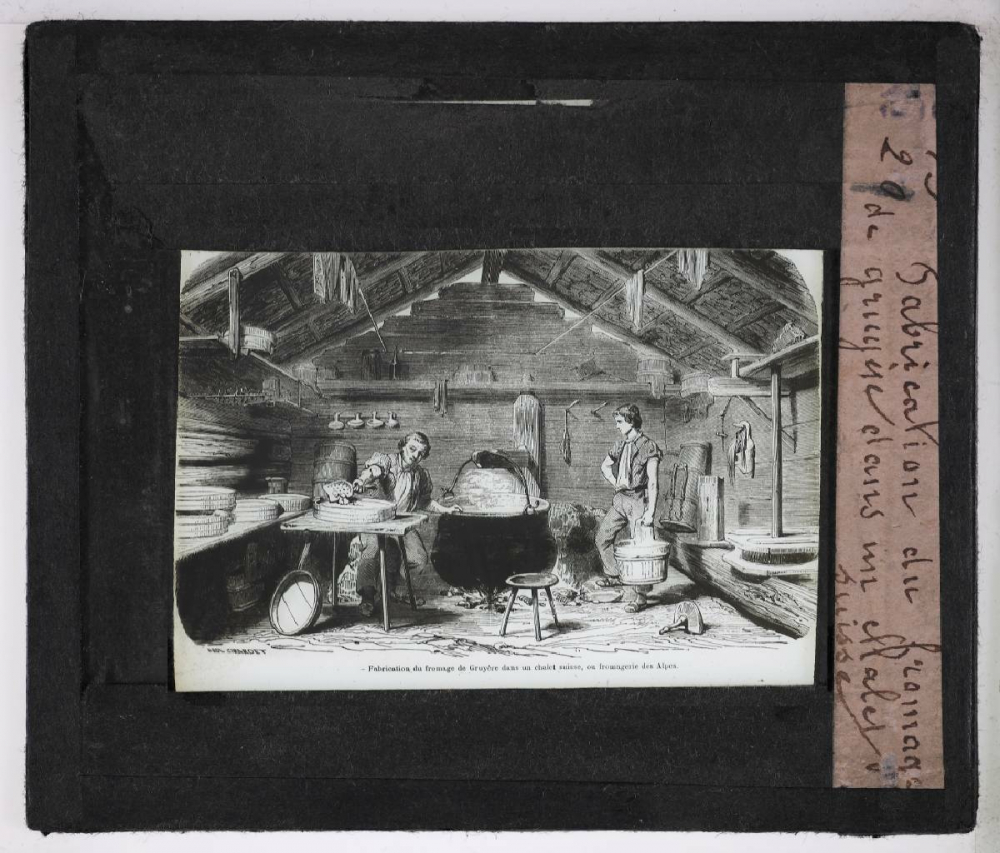 - Fabrication du fromage de Gruyère dans un chalet suisse, ou fromagerie des Alpes.
20
Fabrication du fromage
de gruyere dans un chalet
suisse